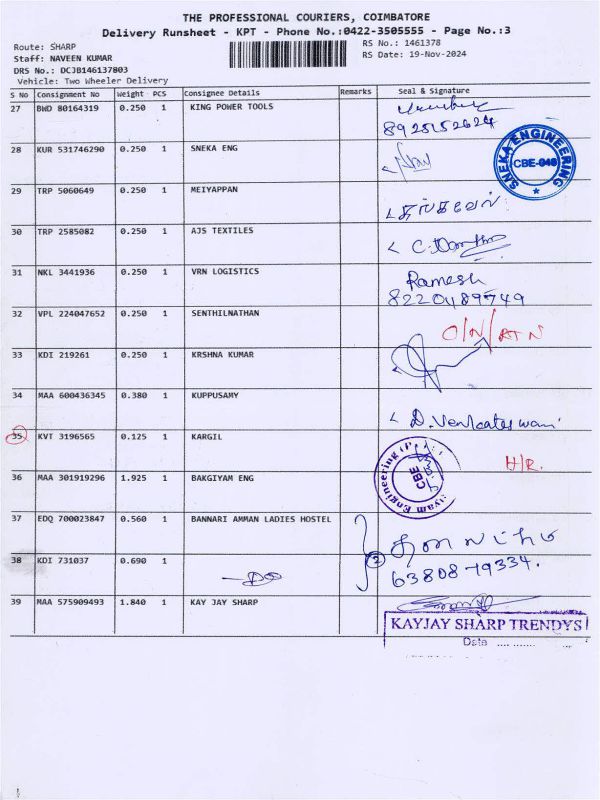 THE PROFESSIONAL COURIERS, COIMBATORE
Delivery Runsheet - KPT - Phone No.:0422-3505555 - Page No.:3
Route: SHARP
RS No.: 1461378
Staff: NAVEEN KUMAR
RS Date: 19-Nov-2024
DRS No.: DCJB146137803
Vehicle: Two Wheeler Delivery
S No Consignment No Weight PCS Consignee Details Remarks Seal & Signature
27 BWD 80164319 0.250 1 KING POWER TOOLS
8925152624
28 KUR 531746290 0.250 1 SNEKA ENG
SNEKA ENGINEERING CBE-048
29 TRP 5060649 0.250 1 MEIYAPPAN
30 TRP 2585082 0.250 1 AJS TEXTILES
31 NKL 3441936 0.250 1 VRN LOGISTICS Ramesh
8220489749
32 VPL 224047652 0.250 1 SENTHILNATHAN
33 KDI 219261 0.250 1 KRSHNA KUMAR
34 MAA 600436345 0.380 1 KUPPUSAMY
D. Venkateswari
35 KVT 3196565 0.125 1 KARGIL
H/R.
36 MAA 301919296 1.925 1 BAKGIYAM ENG
CBE
37 EDQ 700023847 0.560 1 BANNARI AMMAN LADIES HOSTEL
38 KDI 731037 0.690 1 -do- 2
63808 79334.
39 MAA 575909493 1.840 1 KAY JAY SHARP
KAYJAY SHARP TRENDYS
Date .... ........ ...